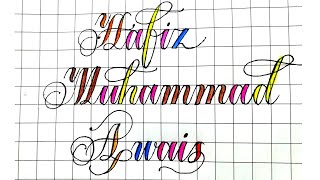 Hafiz
Muhammad
Awais